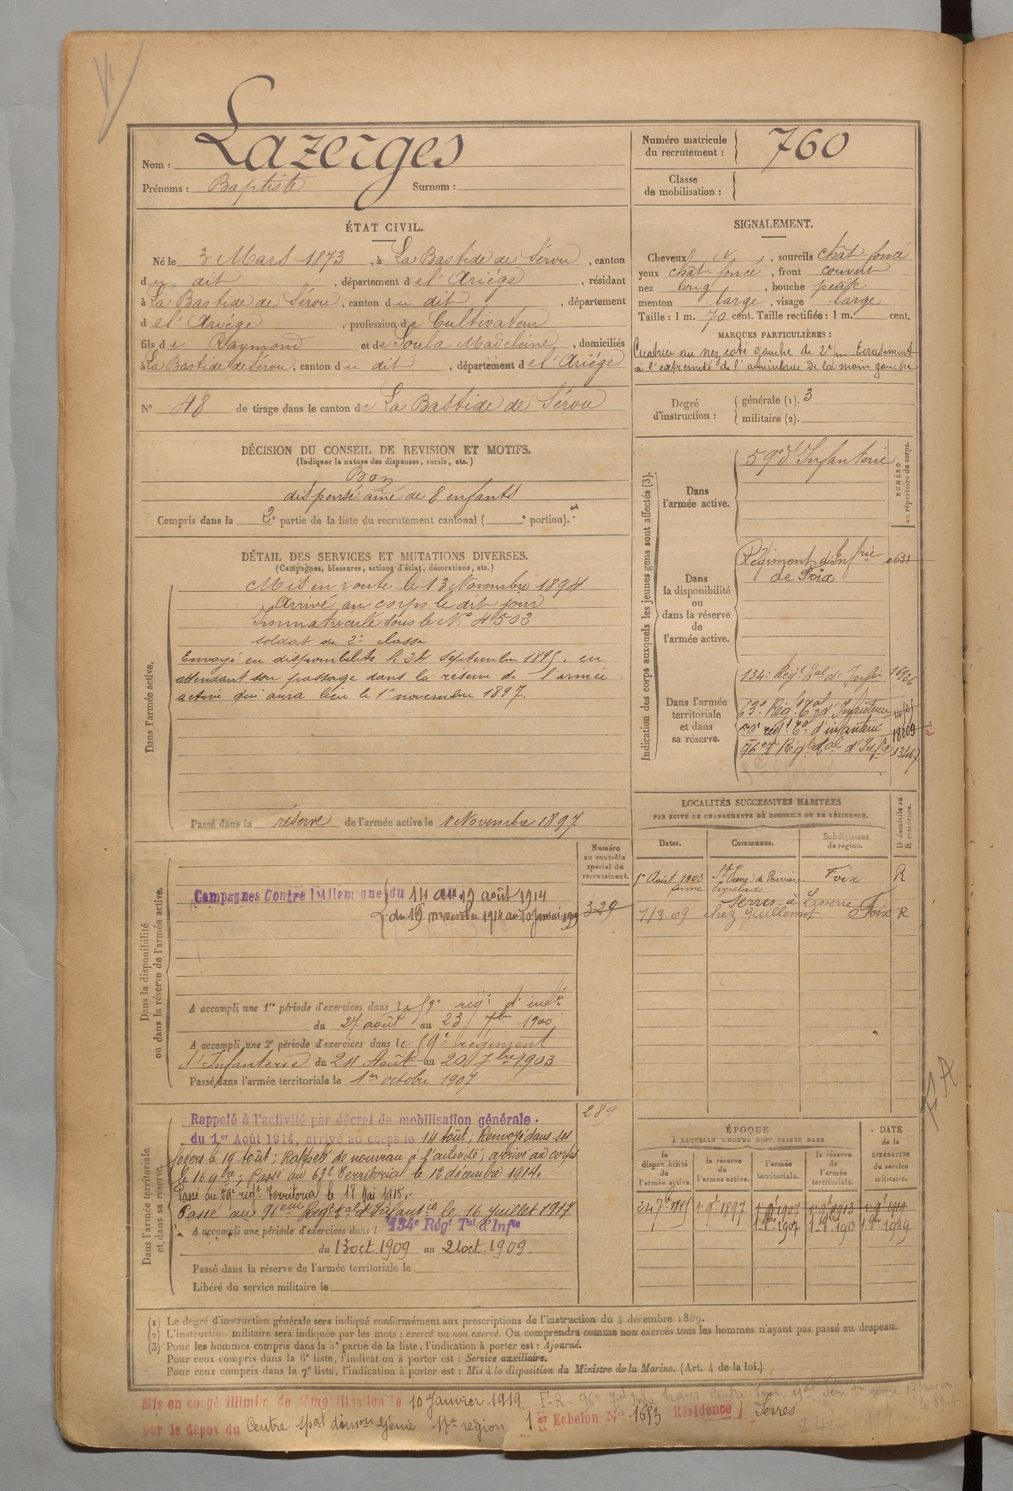 Nom : Lazerges
Prénoms : Baptiste Surnom :
Numéro matricule du recrutement : 760
Classe de mobilisation :
ÉTAT CIVIL.
Né le 3 Mars 1873, à La Bastide de Sérou, canton
du dit, département de l'Ariége, résidant
à La Bastide de Sérou, canton du dit, département
de l'Ariége, profession de Cultivateur
fils de Raymond et de Soula Madeleine, domiciliés
à La Bastide de Sérou, canton du dit, département de l'Ariége
N° 48 de tirage dans le canton de La Bastide de Sérou
SIGNALEMENT.
Cheveux N, sourcils chât foncé
yeux chât foncé, front couvert
nez long, bouche petite
menton large, visage large
Taille : 1 m. 70 cent. Taille rectifiée : 1 m. cent.
MARQUES PARTICULIÈRES :
Cicatrice au nez coté gauche de
à l'extremité de l'auriculaire de la main gauche
Degré d'instruction : générale (1). 3
militaire (2).
DÉCISION DU CONSEIL DE REVISION ET MOTIFS.
(Indiquer la nature des dispenses, sursis, etc.)
Bon
dispensé ainé de 8 enfants
Compris dans la 2e partie de la liste du recrutement cantonal ( e portion).
DÉTAIL DES SERVICES ET MUTATIONS DIVERSES.
(Campagnes, blessures, actions d'éclat, décorations, etc.)
Dans l'armée active.
Mis en route le 13 Novembre 1894
Arrivé au corps le dit jour
Immatriculé sous le N° 4503
soldat de 2e classe
Envoyé en disponibilité le 24 Septembre 1895. en
attendant son passage dans la réserve de l'armée
active qui aura lieu le 1er novembre 1897.
Passé dans la réserve de l'armée active le 1 Novembre 1897
Indication des corps auxquels les jeunes gens sont affectés (3).
NUMÉRO au répertoire du corps.
Dans l'armée active. 59e d'Infanterie
Dans la disponibilité ou dans la réserve de l'armée active.
Régiment d'Infrie
de Foix
Dans l'armée territoriale et dans sa réserve.
134e Régt Tal d'Infie
63e Régt Tal d'Infanterie
70e régt Tal d'infanterie
96e Régt Tal d'Infie
LOCALITÉS SUCCESSIVES HABITÉES
PAR SUITE DE CHANGEMENTS DE DOMICILE OU DE RÉSIDENCE.
Dates. Communes. Subdivisions de région. D domicile ou R résidence.
1er Août 1903 Foix R
7/3.09 Serres chez Guillemot Foix R
Dans la disponibilité ou dans la réserve de l'armée active.
Numéro au contrôle spécial du recrutement.
329
Campagnes Contre l'Allemagne du 14 au 19 août 1914
du 16 novembre 1914 au 10 janvier 1919
A accompli une 1re période d'exercices dans le 59e régt d'infie
du 27 août au 23 7bre 1900
A accompli une 2e période d'exercices dans le 59e régiment
d'Infanterie du 24 Août au 20 7bre 1903
Passé dans l'armée territoriale le 1er octobre 1907
Dans l'armée territoriale et dans sa réserve.
289
Rappelé à l'activité par décret de mobilisation générale.
du 1er Août 1914, arrivé au corps le 14 août, Renvoyé dans ses
foyers le 19 août; Rappelé de nouveau à l'activité; arrivé au corps
le 16 9bre; Passé au 63e Territorial le 12 décembre 1914.
Passé au 70e régt Territorial le 17 Mai 1915.
Passé au 96eme Régt tal d'Infanterie le 16 juillet 1917
A accompli une période d'exercices dans l 134e Régt Tal d'Infie
du 13 oct. 1909 au 21 oct. 1909.
Passé dans la réserve de l'armée territoriale le
Libéré du service militaire le
ÉPOQUE
À LAQUELLE L'HOMME DOIT PASSER DANS
la disponibilité de l'armée active. la réserve de l'armée active. l'armée territoriale. la réserve de l'armée territoriale.
DATE de la LIBÉRATION du service militaire.
24 7bre 1895 1 9e 1897 1 9e 1907 1 9e 1913 1 9e 1919
(1) Le degré d'instruction générale sera indiqué conformément aux prescriptions de l'instruction du 4 décembre 1889.
(2) L'instruction militaire sera indiquée par les mots : exercé ou non exercé. On comprendra comme non exercés tous les hommes n'ayant pas passé au drapeau.
(3) Pour les hommes compris dans la 5e partie de la liste, l'indication à porter est : Ajourné.
Pour ceux compris dans la 6e liste, l'indication à porter est : Service auxiliaire.
Pour ceux compris dans le 7e liste, l'indication à porter est : Mis à la disposition du Ministre de la Marine. (Art. 4 de la loi.)
Mis en congé illimité de démobilisation le 10 Janvier 1919
par le dépôt du Centre spal démon génie 17e région 1er Echelon N° 1683 Résidence Serres